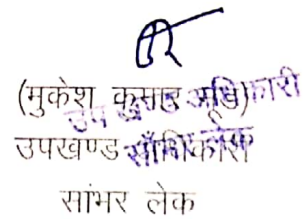 (मुकेश कुमार मूंड)
उपखण्ड अधिकारी
सांभर लेक
उप खण्ड अधिकारी
साँभर लेक